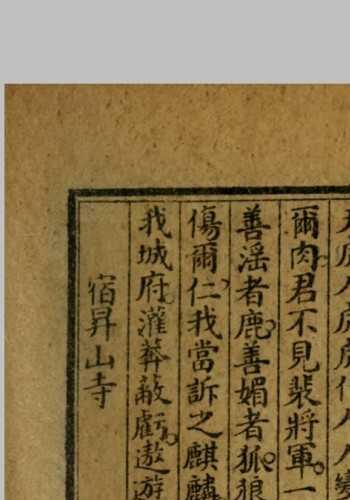 爾肉君不見裴將軍一
善淫者鹿善媚者狐狼
傷爾仁我當訴之麒麟
我城府灌莽蔽虧遨遊
宿昇山寺